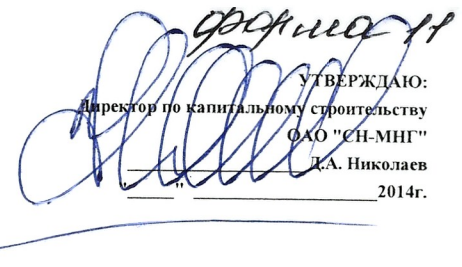 форма 11
УТВЕРЖДАЮ:
Директор по капитальному строительству
ОАО "СН-МНГ"
____________________Д.А. Николаев
"_____" ____________________2014г.